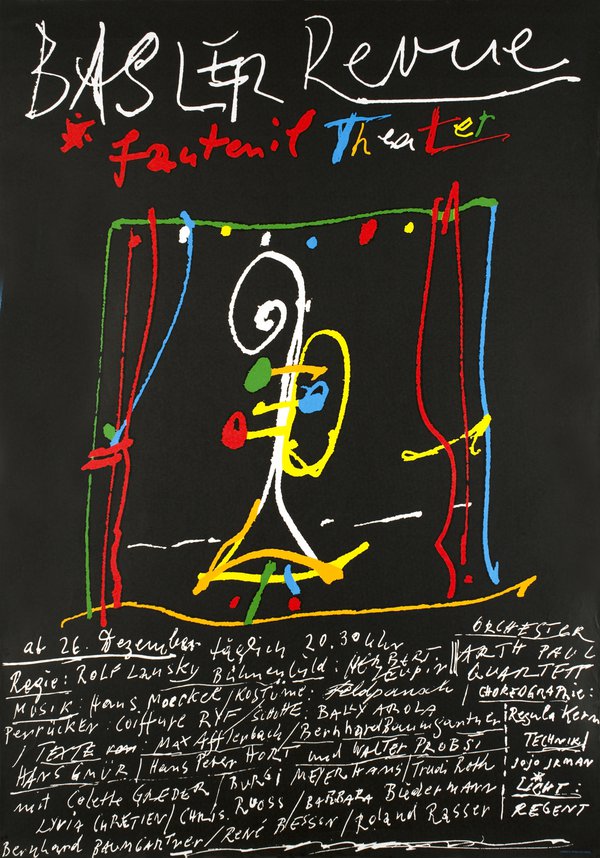 BASLER Revue
Fauteuil Theater
ab 26. Dezember täglich 20.30 Uhr
Regie: ROLF Lansky Bühnenbild: HERBERT LEUPIN
MUSIK: Hans Moeckel / KOSTÜME: Feldpausch
Perrücken: Coiffure RYF / SCHUHE: BALLY AROLA
/ TEXTE von: MAX Afflerbach / Bernhard Baumgartner
HANS GMÜR / Hans Peter HORT und WALTER PROBST
mit Colette GREDER / BURGI MEYERHANS / Trudi Roth
LYVIA CHRÉTIEN / CHRIS. RUOSS / BARBARA Biedermann
Bernhard BAUMGARTNER / RENÉ BESSON / Roland Rasser
ORCHESTER
ARTH PAUL
QUARTETT
CHOREOGRAPHIE:
Regula Kern
TECHNIK
JOJO JRMAN
LICHT:
REGENT